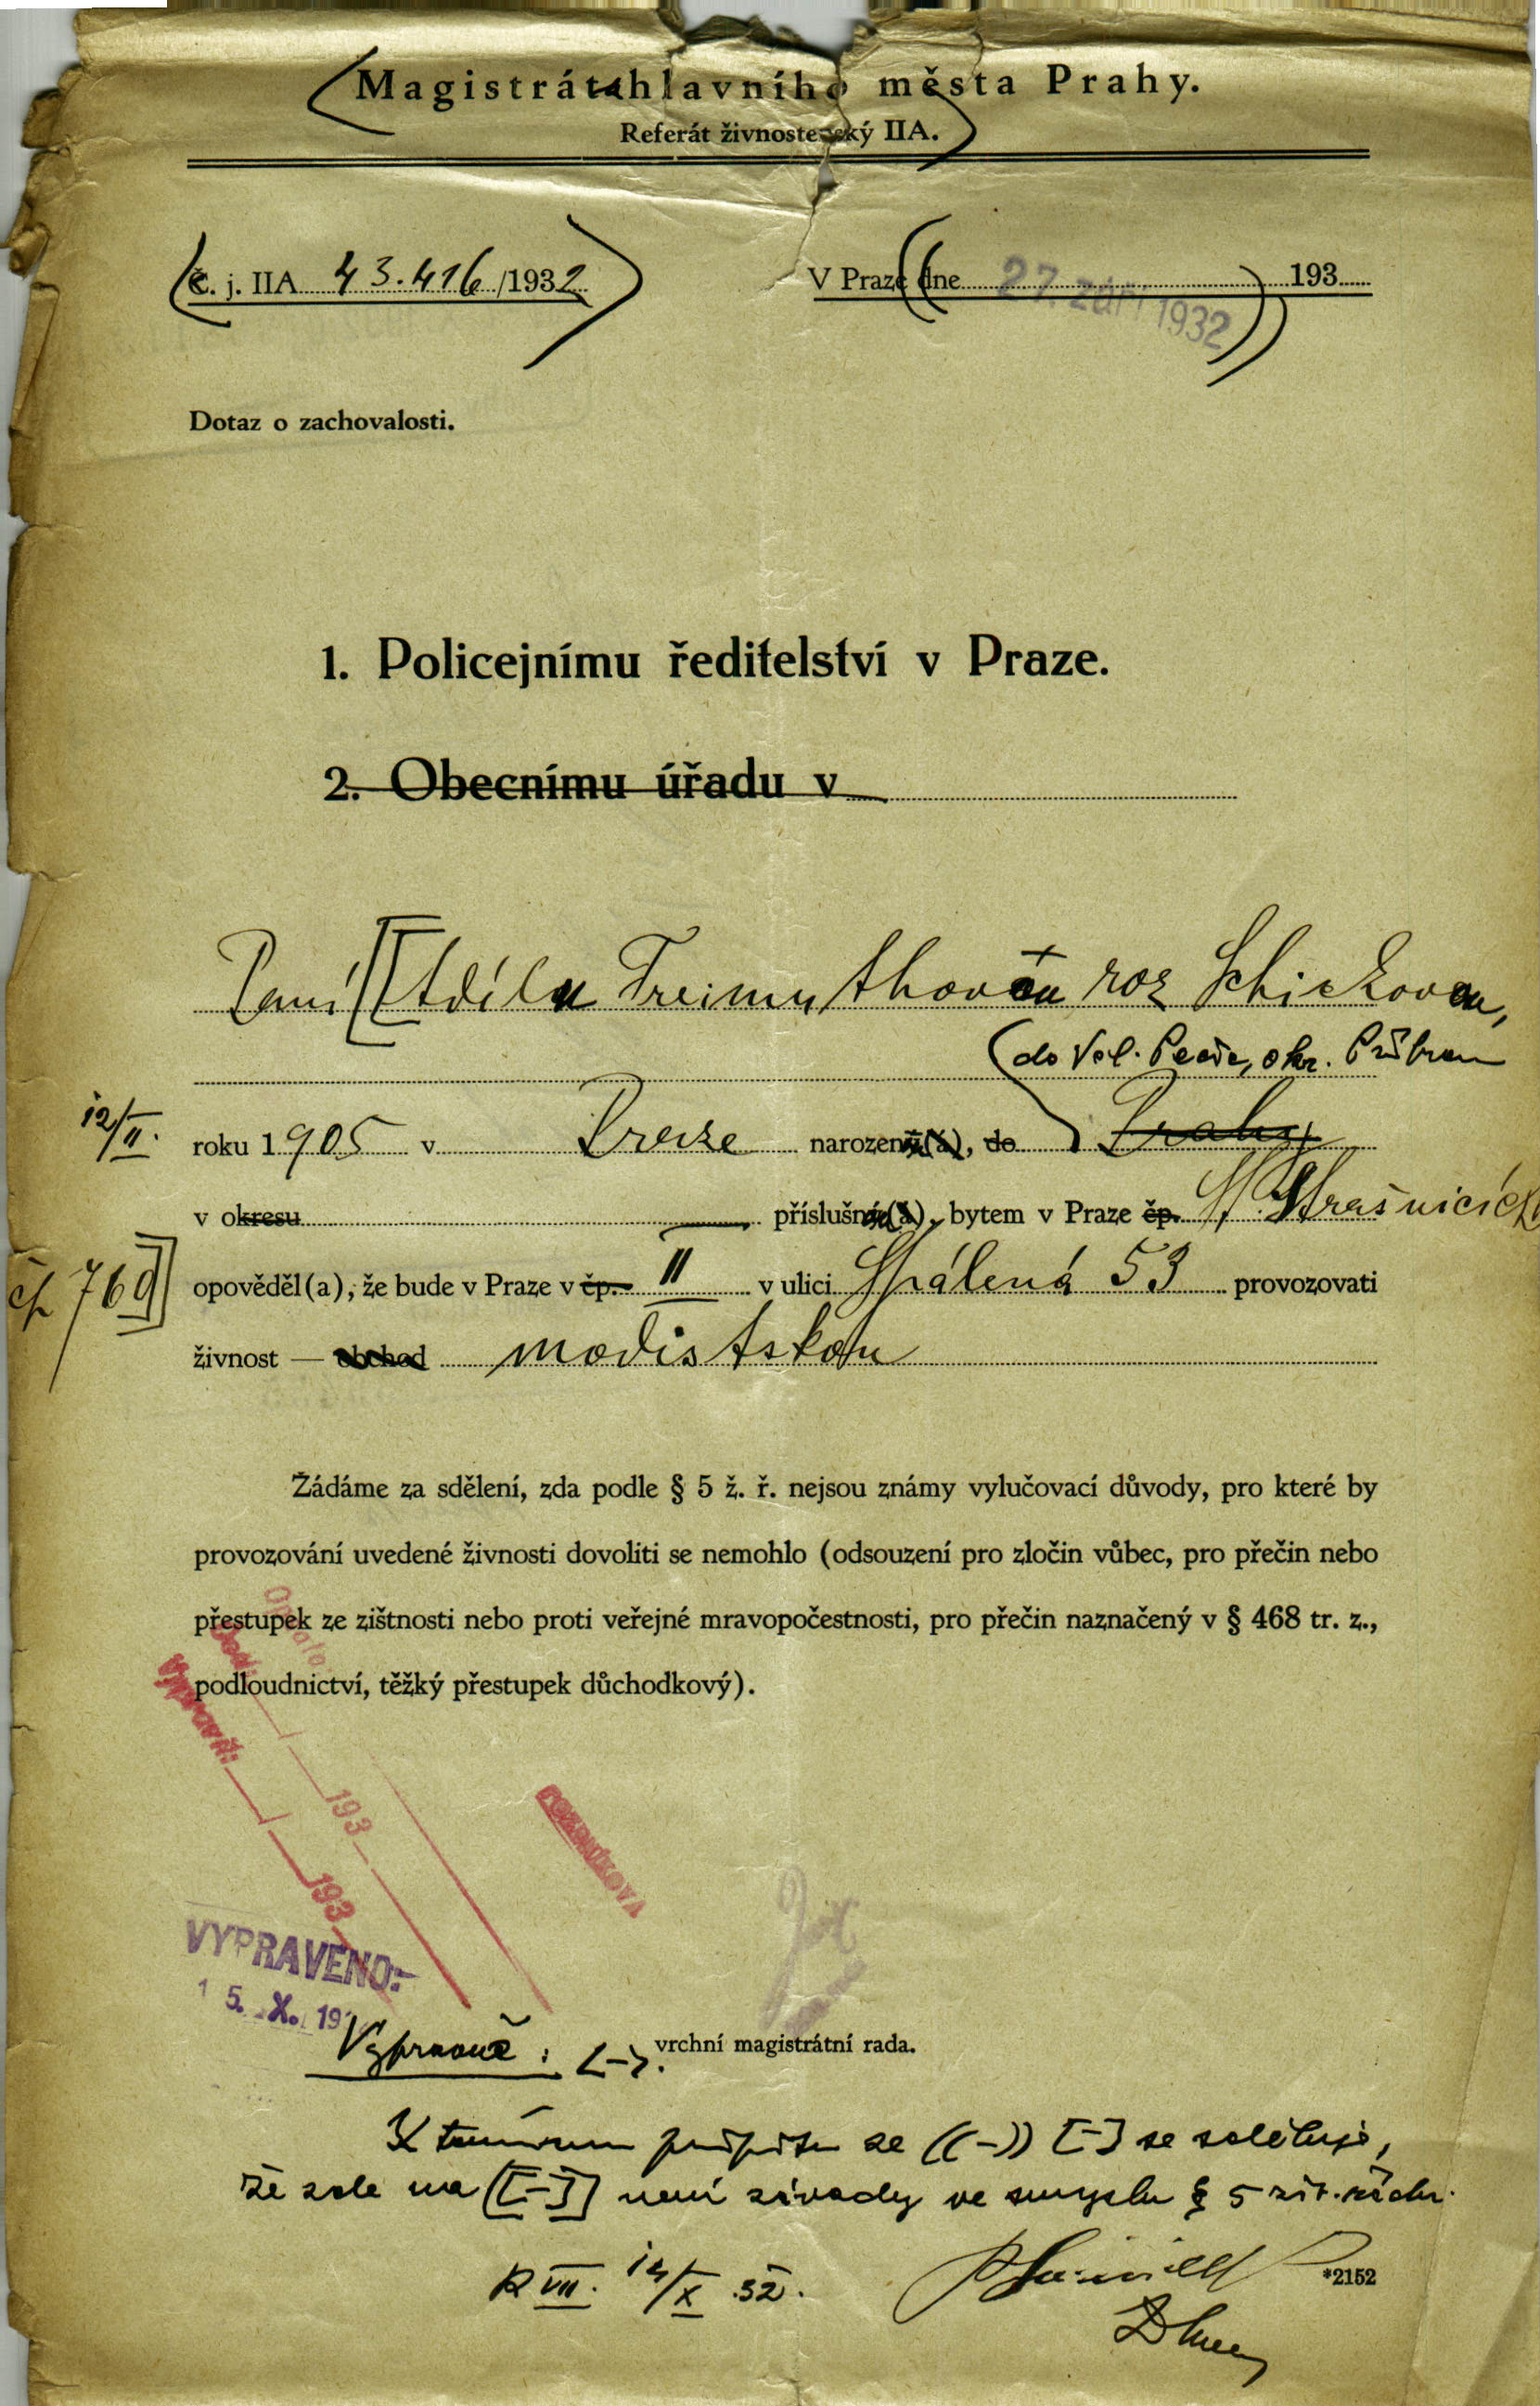 Magistrát hlavního města Prahy.
Referát živnostenský IIA.
Č. j. IIA 43.416/1932
V Praze dne 27. září 1932 193
Dotaz o zachovalosti.
1. Policejnímu ředitelství v Praze.
2. Obecnímu úřadu v
Paní [[Adéla Freimuthová roz Schickova,
(do Vel. Pečic, okr. Příbram
12/II. roku 1905 v Praze narozený(á), do Prahy
v okresu příslušný(á), bytem v Praze čp. Strašnicích
čp 769]] opověděl(a), že bude v Praze v čp. II v ulici Spálená 53 provozovati
živnost — obchod modistskou
Žádáme za sdělení, zda podle § 5 ž. ř. nejsou známy vylučovací důvody, pro které by
provozování uvedené živnosti dovoliti se nemohlo (odsouzení pro zločin vůbec, pro přečin nebo
přestupek ze zištnosti nebo proti veřejné mravopočestnosti, pro přečin naznačený v § 468 tr. z.,
podloudnictví, těžký přestupek důchodkový).
Opsala
Vypravil:
193
193
VYPRAVENO:
15. X. 19
vrchní magistrátní rada.
Vypravit: (-).
přípisu ze ((-)) [-] se sděluje,
že zde na [[-]] není závady ve smyslu § 5 živ. řádu.
R VII. 14/X 32.
*2152